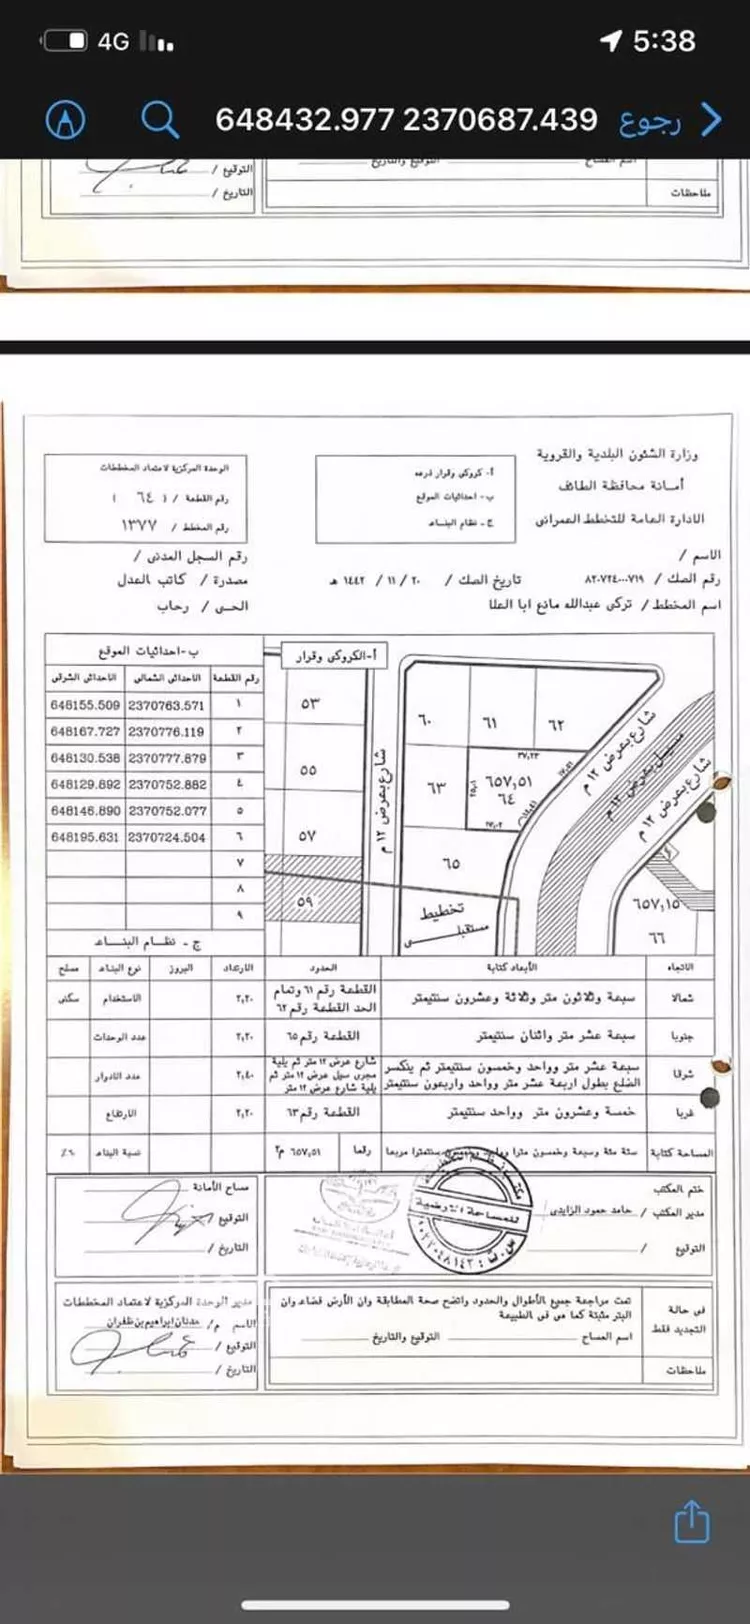 4G
5:38
648432.977 2370687.439
رجوع
التوقيع /
التاريخ /
اسم المساح
التوقيع والتاريخ
ملاحظات
وزارة الشئون البلدية والقروية
أمانة محافظة الطائف
الادارة العامة للتخطط العمرانى
أ- كروكي وقرار ذرعه
ب- احداثيات الموقع
ج- نظام البناء
الوحدة المركزية لاعتماد المخططات
رقم القطعة / ( ٦٤ )
رقم المخطط / ١٣٧٧
الاسم /
رقم السجل المدنى /
رقم الصك / ٨٢٠٧٢٤٠٠٠٧١٩
تاريخ الصك / ٢٠ / ١١ / ١٤٤٢ هـ
مصدرة / كاتب العدل
اسم المخطط / تركي عبدالله مانع ابا العلا
الحى / رحاب
أ-الكروكى وقرار
ب-احداثيات الموقع
رقم القطعة الاحداثى الشمالى الاحداثى الشرقى
١ 2370763.571 648155.509
٢ 2370776.119 648167.727
٣ 2370777.879 648130.538
٤ 2370752.882 648129.892
٥ 2370752.077 648146.890
٦ 2370724.504 648195.631
٧
٨
٩
٥٣
٥٥
٥٧
٥٩
شارع بعرض ١٢ م
٦٠
٦١
٦٢
٦٣
٣٧,٢٣
٦٥٧,٥١
٦٤
٢٥,٠١
١٧,٠٢
١٧,٥١
١٤,٤١
٦٥
تخطيط
مستقبلى
شارع بعرض ١٢ م
مسيل بعرض ١٢ م
شارع بعرض ١٢ م
٦٥٧,١٥
٦٦
ج - نظام البناء
الاتجاه الأبعاد كتابة الحدود الارتداد البروز نوع البناء مسلح
شمالا سبعة وثلاثون متر وثلاثة وعشرون سنتيمتر القطعة رقم ٦١ وتمام الحد القطعة رقم ٦٢ ٢,٢٠ الاستخدام سكنى
جنوبا سبعة عشر متر واثنان سنتيمتر القطعة رقم ٦٥ ٢,٢٠ عدد الوحدات
شرقا سبعة عشر متر وواحد وخمسون سنتيمتر ثم ينكسر الضلع بطول اربعة عشر متر وواحد واربعون سنتيمتر شارع عرض ١٢ متر ثم يلية مجرى سيل عرض ١٢ متر ثم يلية شارع عرض ١٢ متر ٢,٤٠ عدد الادوار
غربا خمسة وعشرون متر وواحد سنتيمتر القطعة رقم ٦٣ ٢,٢٠ الارتفاع
المساحة كتابة ستة مئة وسبعة وخمسون مترا وواحد وخمسون سنتيمترا مربعا رقما ٦٥٧,٥١ م٢ نسبة البناء
ختم المكتب
مدير المكتب / حامد حمود الزايدى
التوقيع /
للمساحة الارضية
مساح الأمانة
التوقيع
التاريخ /
فى حالة التجديد فقط
تمت مراجعة جميع الأطوال والحدود واتضح صحة المطابقة وان الأرض فضاء وان
البتر مثبتة كما هى فى الطبيعة
اسم المساح
التوقيع والتاريخ
ملاحظات
مدير الوحدة المركزية لاعتماد المخططات
الاسم م/ عدنان ابراهيم بن ظفران
التوقيع /
التاريخ /